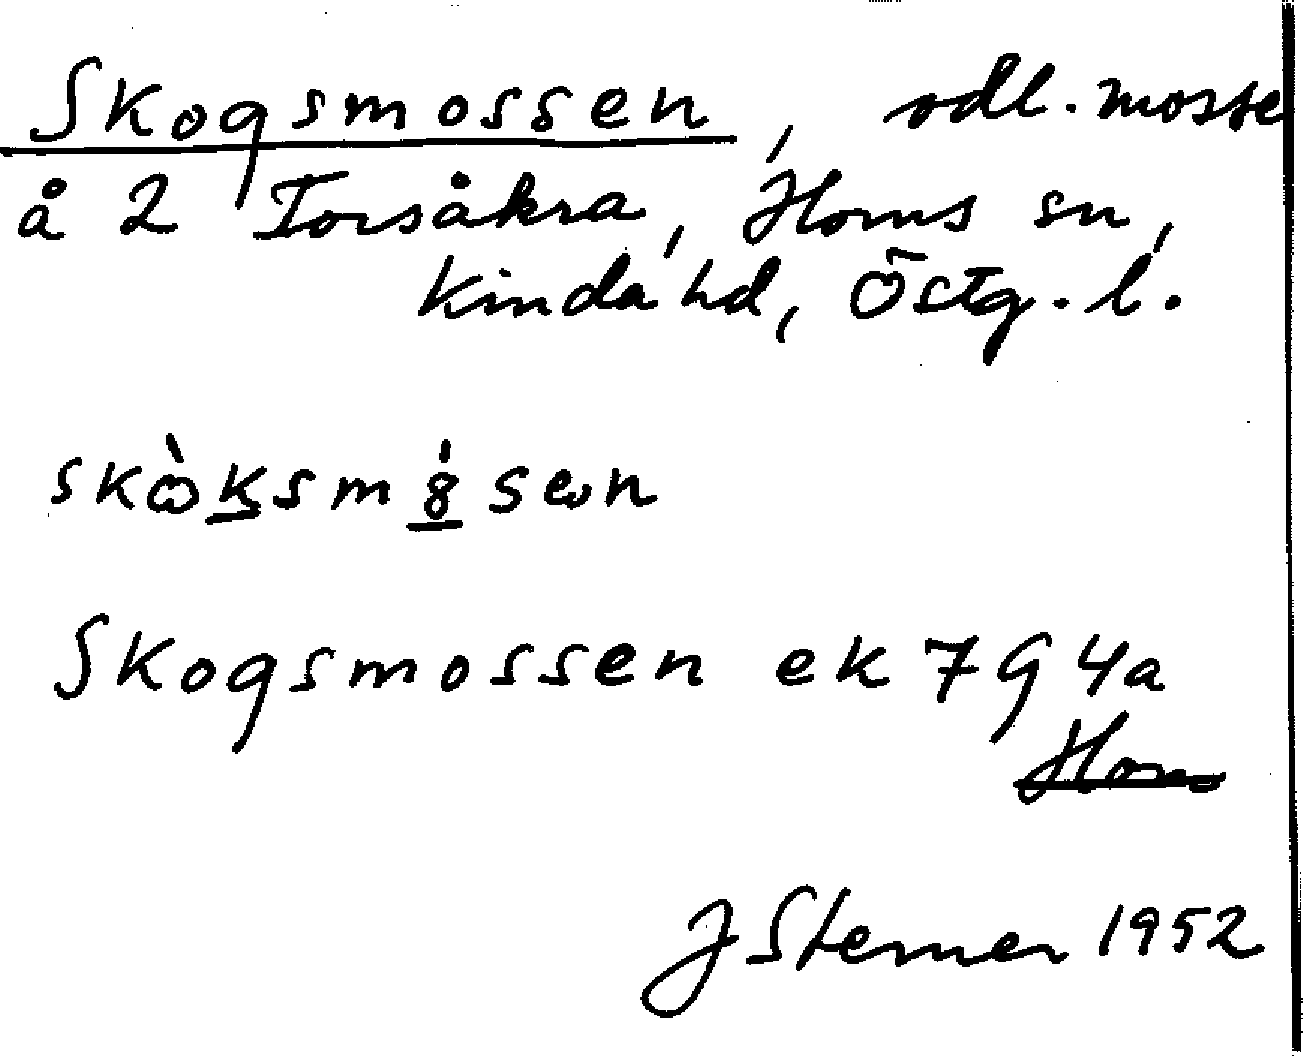 Skogsmossen, odl. mosse
å 2 Torsåkra, Horns sn,
Kinda hd, Östg. l.
skòksm8́sen
Skogsmossen ek 7G4a
Horn
J Sterner 1952